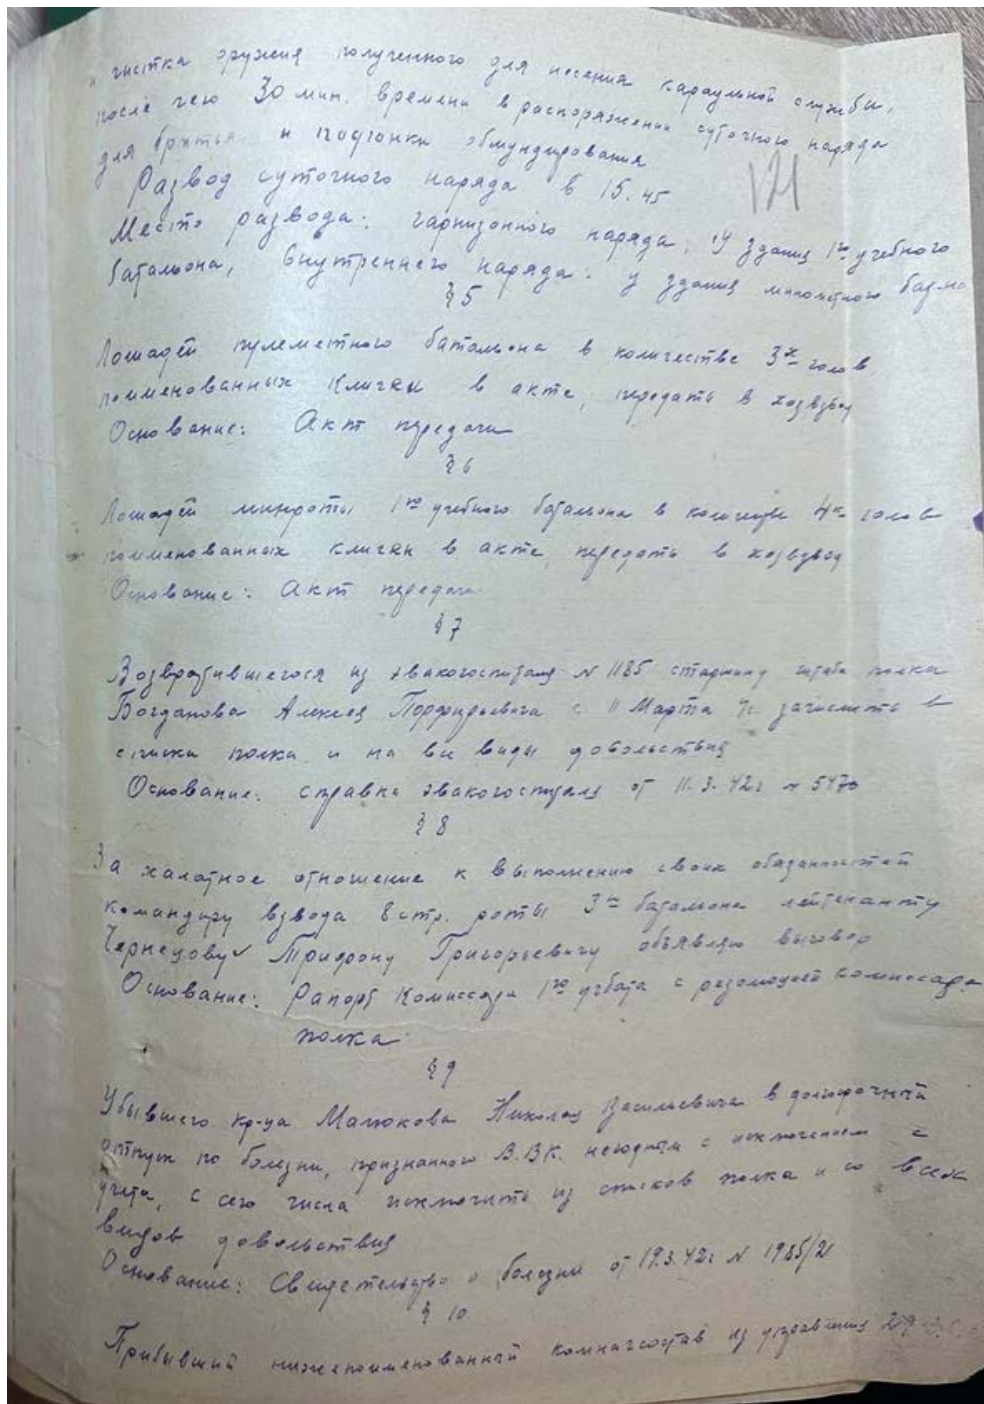 и чистка оружия полученного для несения караульной службы,
после чего 30 мин. времени в распоряжении суточного наряда
для бритья и подгонки обмундирования
Развод суточного наряда в 15.45
121
Место развода: гарнизонного наряда: у здания 1го учебного
батальона, внутреннего наряда: у здания минометного бат-на
§ 5
Лошадей пулеметного батальона в количестве 3х голов
поименованных кличек в акте, передать в хозвзвод
Основание: Акт передачи
§ 6
Лошадей минроты 1го учебного батальона в количестве 4х голов
поименованных кличек в акте, передать в хозвзвод
Основание: Акт передачи
§ 7
Возвратившегося из эвакогоспиталя № 1185 старшину штаба полка
Богданова Алексея Порфирьевича с 11 Марта зачислить в
списки полка и на все виды довольствия
Основание: справка эвакогоспиталя от 11.3.42г № 5470
§ 8
За халатное отношение к выполнению своих обязанностей
командиру взвода 8 стр. роты 3го батальона лейтенанту
Чернецову Трифону Григорьевичу объявляю выговор
Основание: Рапорт Комиссара 1го учбата с резолюцией комиссара
полка
§ 9
Убывшего кр-ца Малюкова Николая Васильевича в долгосрочный
отпуск по болезни, признанного В.В.К. негодным с исключением с
учета, с сего числа исключить из списков полка и со всех
видов довольствия
Основание: Свидетельство о болезни от 19.3.42г № 1985/21
§ 10
Прибывший нижепоименованный комначсостав из управления 29